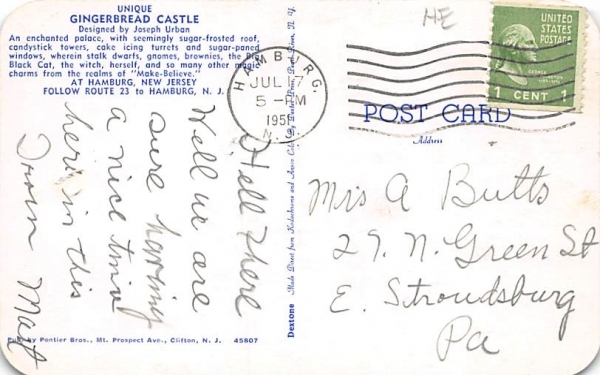 UNIQUE
GINGERBREAD CASTLE
Designed by Joseph Urban
An enchanted palace, with seemingly sugar-frosted roof,
candystick towers, cake icing turrets and sugar-paned
windows, wherein stalk dwarfs, gnomes, brownies, the Big
Black Cat, the witch, herself, and so many other magic
charms from the realms of "Make-Believe."
AT HAMBURG, NEW JERSEY
FOLLOW ROUTE 23 to HAMBURG, N. J.
Hell There
Well we are
sure having
a nice time
here in this
Town Mat
Pub. by Pontier Bros., Mt. Prospect Ave., Clifton, N. J. 45807
HAMBURG,
JUL 7
5-PM
1951
N.J.
Dextone
Made Direct from Kodachrome and Ansco Color By Dexter Press, Pearl River, N. Y.
HE
UNITED
STATES
POSTAGE
GEORGE
WASHINGTON
1 CENT 1
POST CARD
Address
Mrs A Butts
27. N. Green St
E. Stroudsburg
Pa